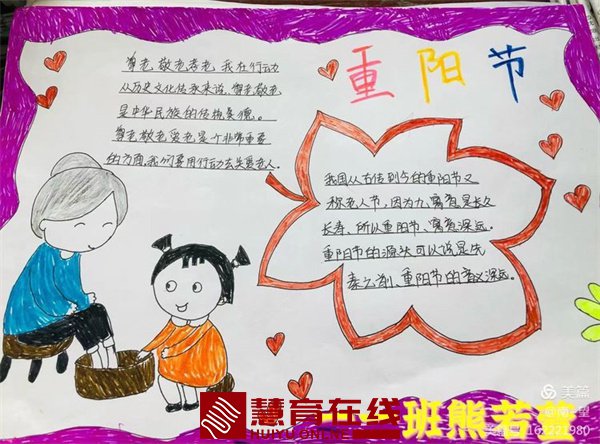 重阳节
尊老敬老孝老,我在行动
从历史文化传承来说,尊老敬老
是中华民族的传统美德。
尊老敬老爱老是个非常重要
的方面,我们要用行动去关爱老人.
我国从古传到今的重阳节又
称老人节,因为九,寓意是长久
长寿,所以重阳节、寓意深远。
重阳节的源头可以说是先
秦之前,重阳节的意义深远。
慧育在线
HUIYU.ONLINE
班熊若
美篇